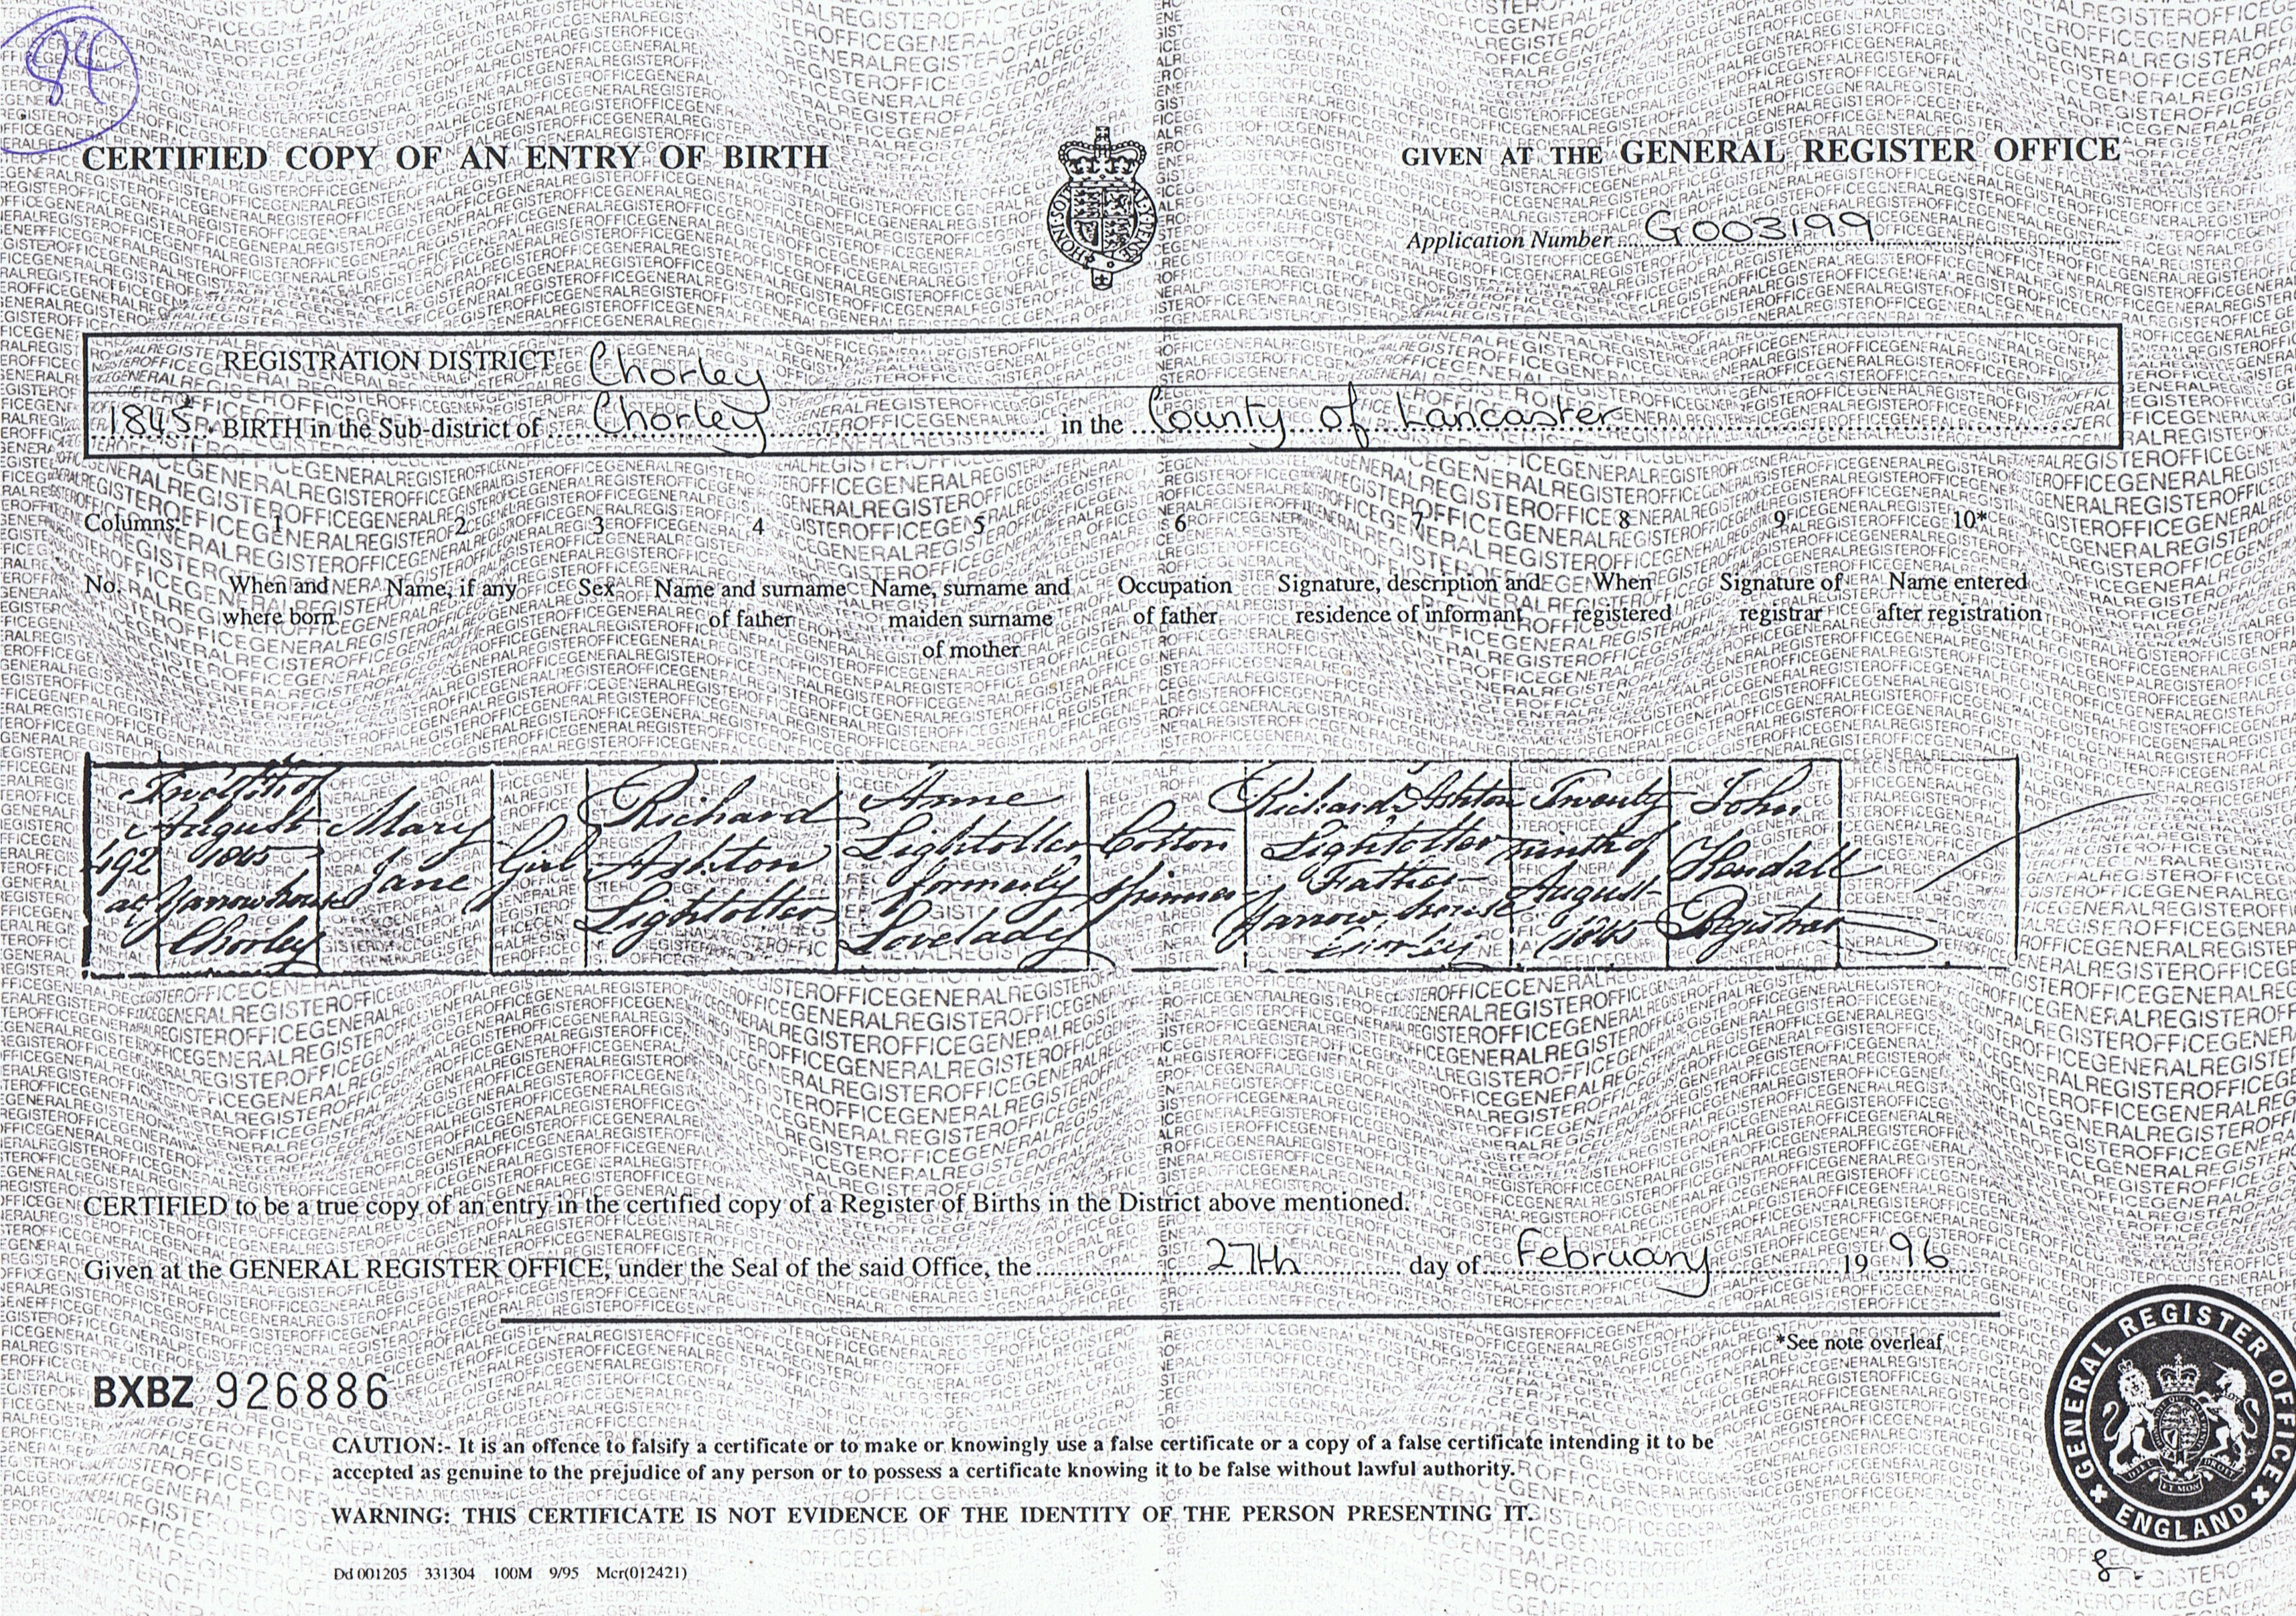 94
CERTIFIED COPY OF AN ENTRY OF BIRTH
GIVEN AT THE GENERAL REGISTER OFFICE
Application Number G003199
REGISTRATION DISTRICT Chorley
1845. BIRTH in the Sub-district of Chorley in the County of Lancaster
Columns:- 1 2 3 4 5 6 7 8 9 10*
No. When and Name, if any Sex Name and surname Name, surname and Occupation Signature, description and When Signature of Name entered
where born of father maiden surname of father residence of informant registered registrar after registration
of mother
Twelfth of Richard Anne Richard Ashton Twenty John
August Mary Lightoller Cotton Lightoller ninth of
492 1845 Girl Ashton formerly Father August Hendall
at Yarrow house Jane Lightoller Lovelady Spinner Yarrow house 1845 Registrar
Chorley Chorley
CERTIFIED to be a true copy of an entry in the certified copy of a Register of Births in the District above mentioned.
Given at the GENERAL REGISTER OFFICE, under the Seal of the said Office, the 27th day of February 19 96
*See note overleaf
BXBZ 926886
CAUTION:- It is an offence to falsify a certificate or to make or knowingly use a false certificate or a copy of a false certificate intending it to be
accepted as genuine to the prejudice of any person or to possess a certificate knowing it to be false without lawful authority.
WARNING: THIS CERTIFICATE IS NOT EVIDENCE OF THE IDENTITY OF THE PERSON PRESENTING IT.
GENERAL REGISTER OFFICE
ENGLAND
Dd 001205 331304 100M 9/95 Mcr(012421)